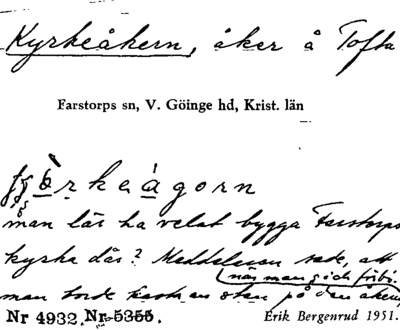 Kyrkeåkern, åker å Tofta
Farstorps sn, V. Göinge hd, Krist. län
man lär ha velat bygga Farstorps
kyrka där? Meddelaren sade, att
när man gick förbi
man borde kasta en sten på den åkern,
Nr 4932. Nr 5355. Erik Bergenrud 1951.